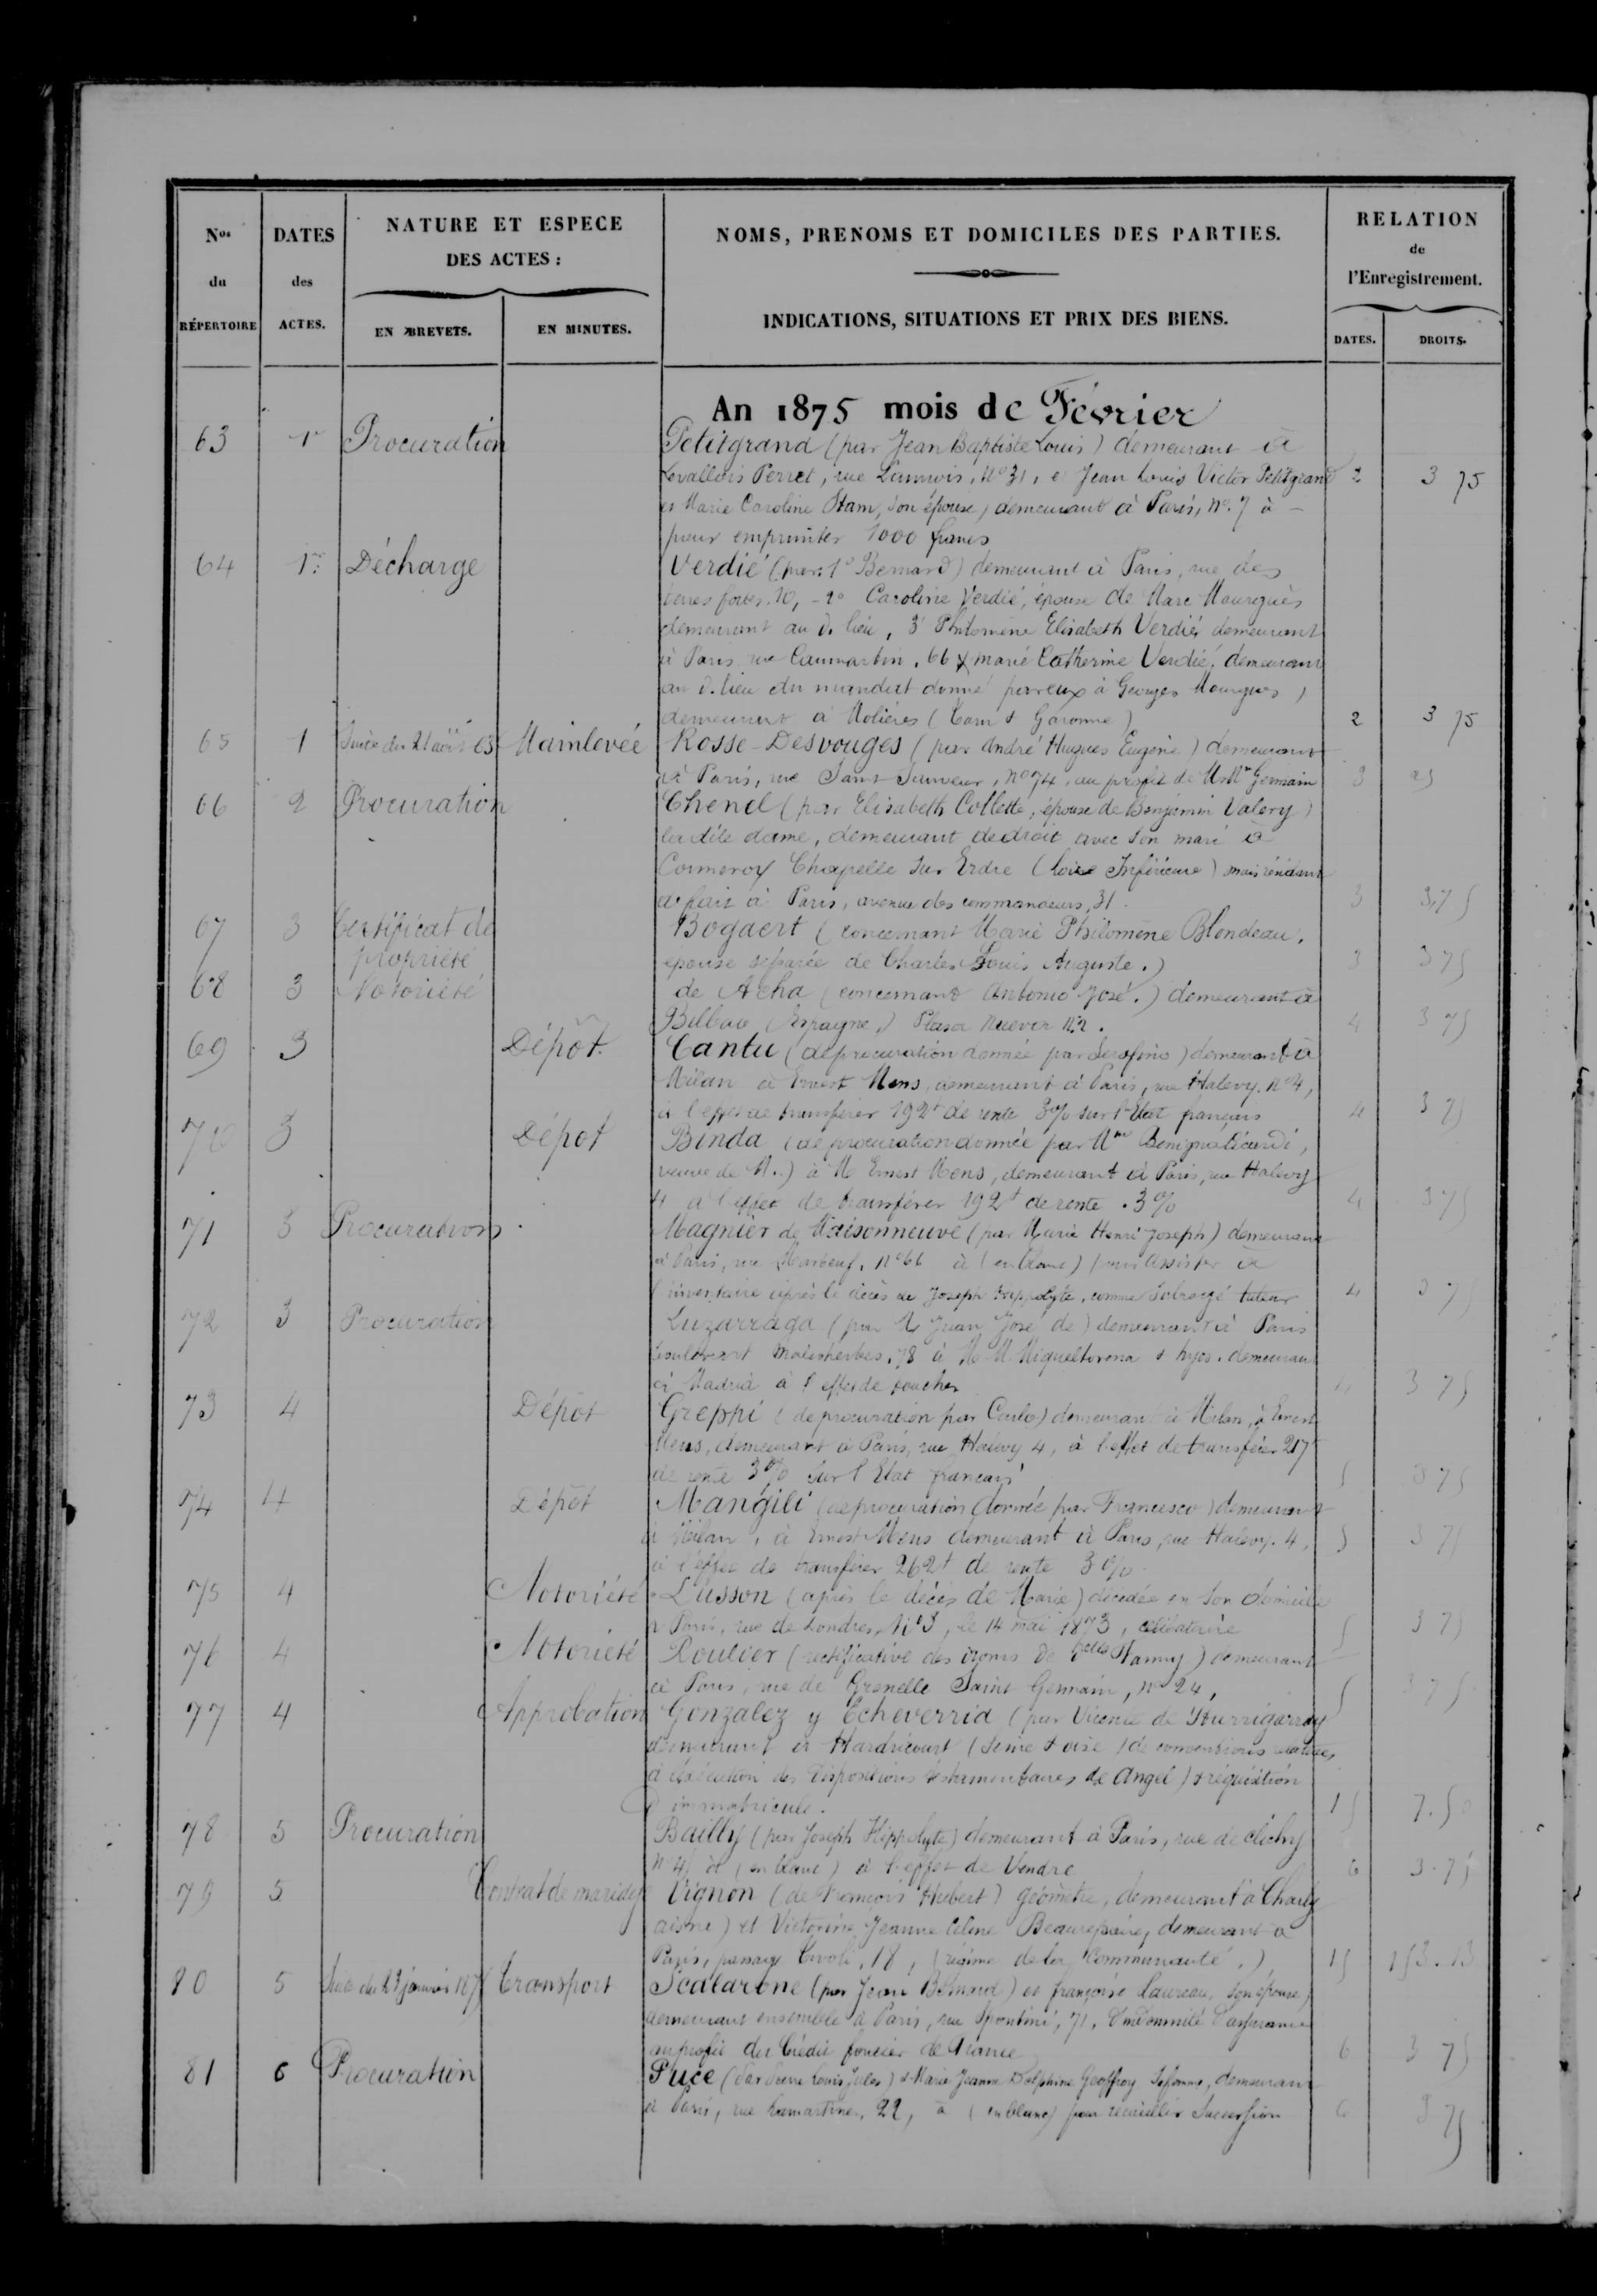 Nos du RÉPERTOIRE
DATES des ACTES.
NATURE ET ESPECE DES ACTES :
EN BREVETS.
EN MINUTES.
NOMS, PRENOMS ET DOMICILES DES PARTIES.
INDICATIONS, SITUATIONS ET PRIX DES BIENS.
RELATION de l'Enregistrement.
DATES.
DROITS.
An 1875 mois de Février
63 1er Procuration Petitgrand (par Jean Baptiste Louis) demeurant à
Levallois Perret, rue Lannois, No 31, et Jean Louis Victor Petitgrand 2 3 75
et Marie Caroline Stam, son épouse) demeurant à Paris, No. 7 à -
pour emprunter 1000 francs
64 1er Décharge Verdié (par: 1o Bernard) demeurant à Paris, rue des
terres fortes. 10, - 2o Caroline Verdié, épouse de Marc Mourgues
demeurant au d. lieu, 3o Philomène Elisabeth Verdié, demeurant
à Paris rue Caumartin. 66 marie Catherine Verdié, demeurant
au d. lieu du mandat donné par eux à Georges Mourgues)
demeurant à Molières (Tarn & Garonne) 2 3 75
65 1 Suite du 21 août 63 Mainlevée Rosse-Desvouges (par André Hugues Eugène) demeurant
à Paris, rue Saint Sauveur, No 74, au profit de M. Mme Germain 3
66 2 Procuration Chenel (par Elisabeth Collette, épouse de Benjamin Valery)
la dite dame, demeurant de droit avec son mari à
Chapelle sur Erdre (Loire Inférieure) mais résidant
de fait à Paris, avenue des 31. 3 3.75
67 3 Certificat de Bogaert (concernant Marie Philomène Blondeau,
propriété épouse séparée de Charles Louis Auguste.) 3 3 75
68 3 Notoriété de Acha (concernant Antonio José.) demeurant à
Bilbao (Espagne,) Plasa Nueva No 2. 4 3 75
69 3 Dépôt. Cantu (de procuration donnée par Serafino) demeurant à
Milan à Ernest Mens, demeurant à Paris, rue Halevy. No 4,
à l'effet de transférer 192f de rente 3% sur l'Etat français 4 3 75
70 3 Dépôt Binda (de procuration donnée par Mme
veuve de M.) à M Ernest Mens, demeurant à Paris, rue Halevy
4 à l'effet de transférer 192f de rente. 3% 4 3 75
71 3 Procuration Magnier de Maisonneuve (par Marie Henri Joseph) demeurant
à Paris, rue Marbeuf, No 66 à (en blanc) pour assister à
l'inventaire après le décès de Joseph Hippolyte, comme subrogé tuteur 4 3 75
72 3 Procuration Luzarraga (par M Juan José de) demeurant à Paris
boulevart Malesherbes, 78 à M.M. Miquelterona & hijos. demeurant
à Madrid à l'effet de toucher 3 75
73 4 Dépôt Greppi (de procuration par Carlo) demeurant à Milan, à Ernest
Mens, demeurant à Paris, rue Halevy 4, à l'effet de transférer 217f
de rente 3% sur l'Etat francais 5 3 75
74 4 Dépôt Mangili (de procuration donnée par Francesco) demeurant
à Milan, à Ernest Mens demeurant à Paris, rue Halevy. 4, 5 3 75
à l'effet de transférer 262f de rente 3%
75 4 Notoriété Lusson (après le décès de Marie) décédée en son domicile
à Paris, rue de Londres, No 3, le 14 mai 1873, célibataire 5 3 75
76 4 Notoriété Roulier (rectificative des noms de Delle Fanny) demeurant
à Paris, rue de Grenelle Saint Germain, no 24, 5 3 75
77 4 Approbation Gonzalez y Echeverria (par Vicenta de Yturrigarray
demeurant à Hardricourt (Seine & oise) de conventions relatives
à exécution des dispositions testamentaires de Angel) & réquisition
d'immatricule. 15 7.50
78 5 Procuration Bailly (par Joseph Hippolyte) demeurant à Paris, rue de Clichy
à (en blanc) à l'effet de Vendre 6 3.75
79 5 Contrat de mariage Vignon (de François Hubert) géomètre, demeurant à Charly
aisne) et Victorine Jeanne Céline Beaurepaire, demeurant à
Paris, passage Tivoli, 18, (régime de la Communauté.) 15 153.13
80 5 Suite du 23 janvier 187 Transport Scalarone (par Jean Bernard) et françoise Laureau, son épouse)
demeurant ensemble à Paris, rue Spontini, 71, d'indemnité d'assurance
au profit du Crédit foncier de France 6 3 75
81 6 Procuration Puce (Par Pierre Louis Jules) & Marie Jeanne Delphine Geoffroy sa femme, demeurant
à Paris, rue Lamartine, 22, à (en blanc) pour recueillir Succession 6 3 75